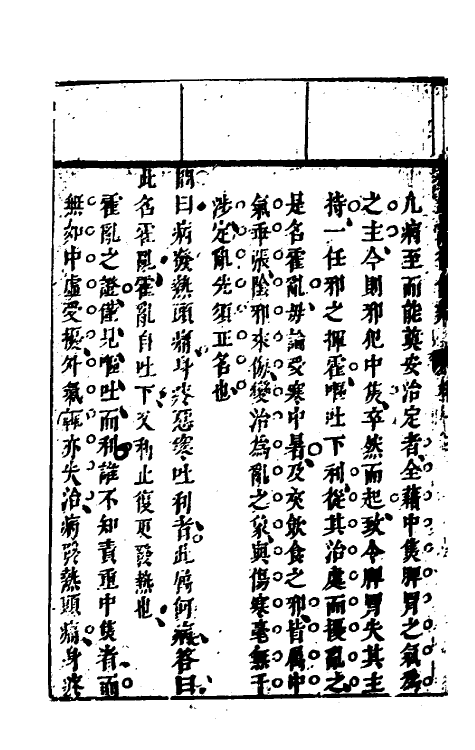 凡病至而能奠安治定者全藉中焦脾胃之氣爲
之主今則邪犯中焦卒然而起致令脾胃失其主
持一任邪之揮霍嘔吐下利從其治處而擾亂之
是名霍亂毋論受寒中暑及夾飲食之邪皆屬中
氣乖張陰邪來傷變治爲亂之象與傷寒毫無干
涉定亂先須正名也
問曰病發熱頭痛身疼惡寒吐利者此屬何病答曰
此名霍亂霍亂自吐下又利止復更發熱也
霍亂之證僅見嘔吐而利誰不知責重中焦者而
無如中虛受擾外氣輒亦失治病發熱頭痛身疼